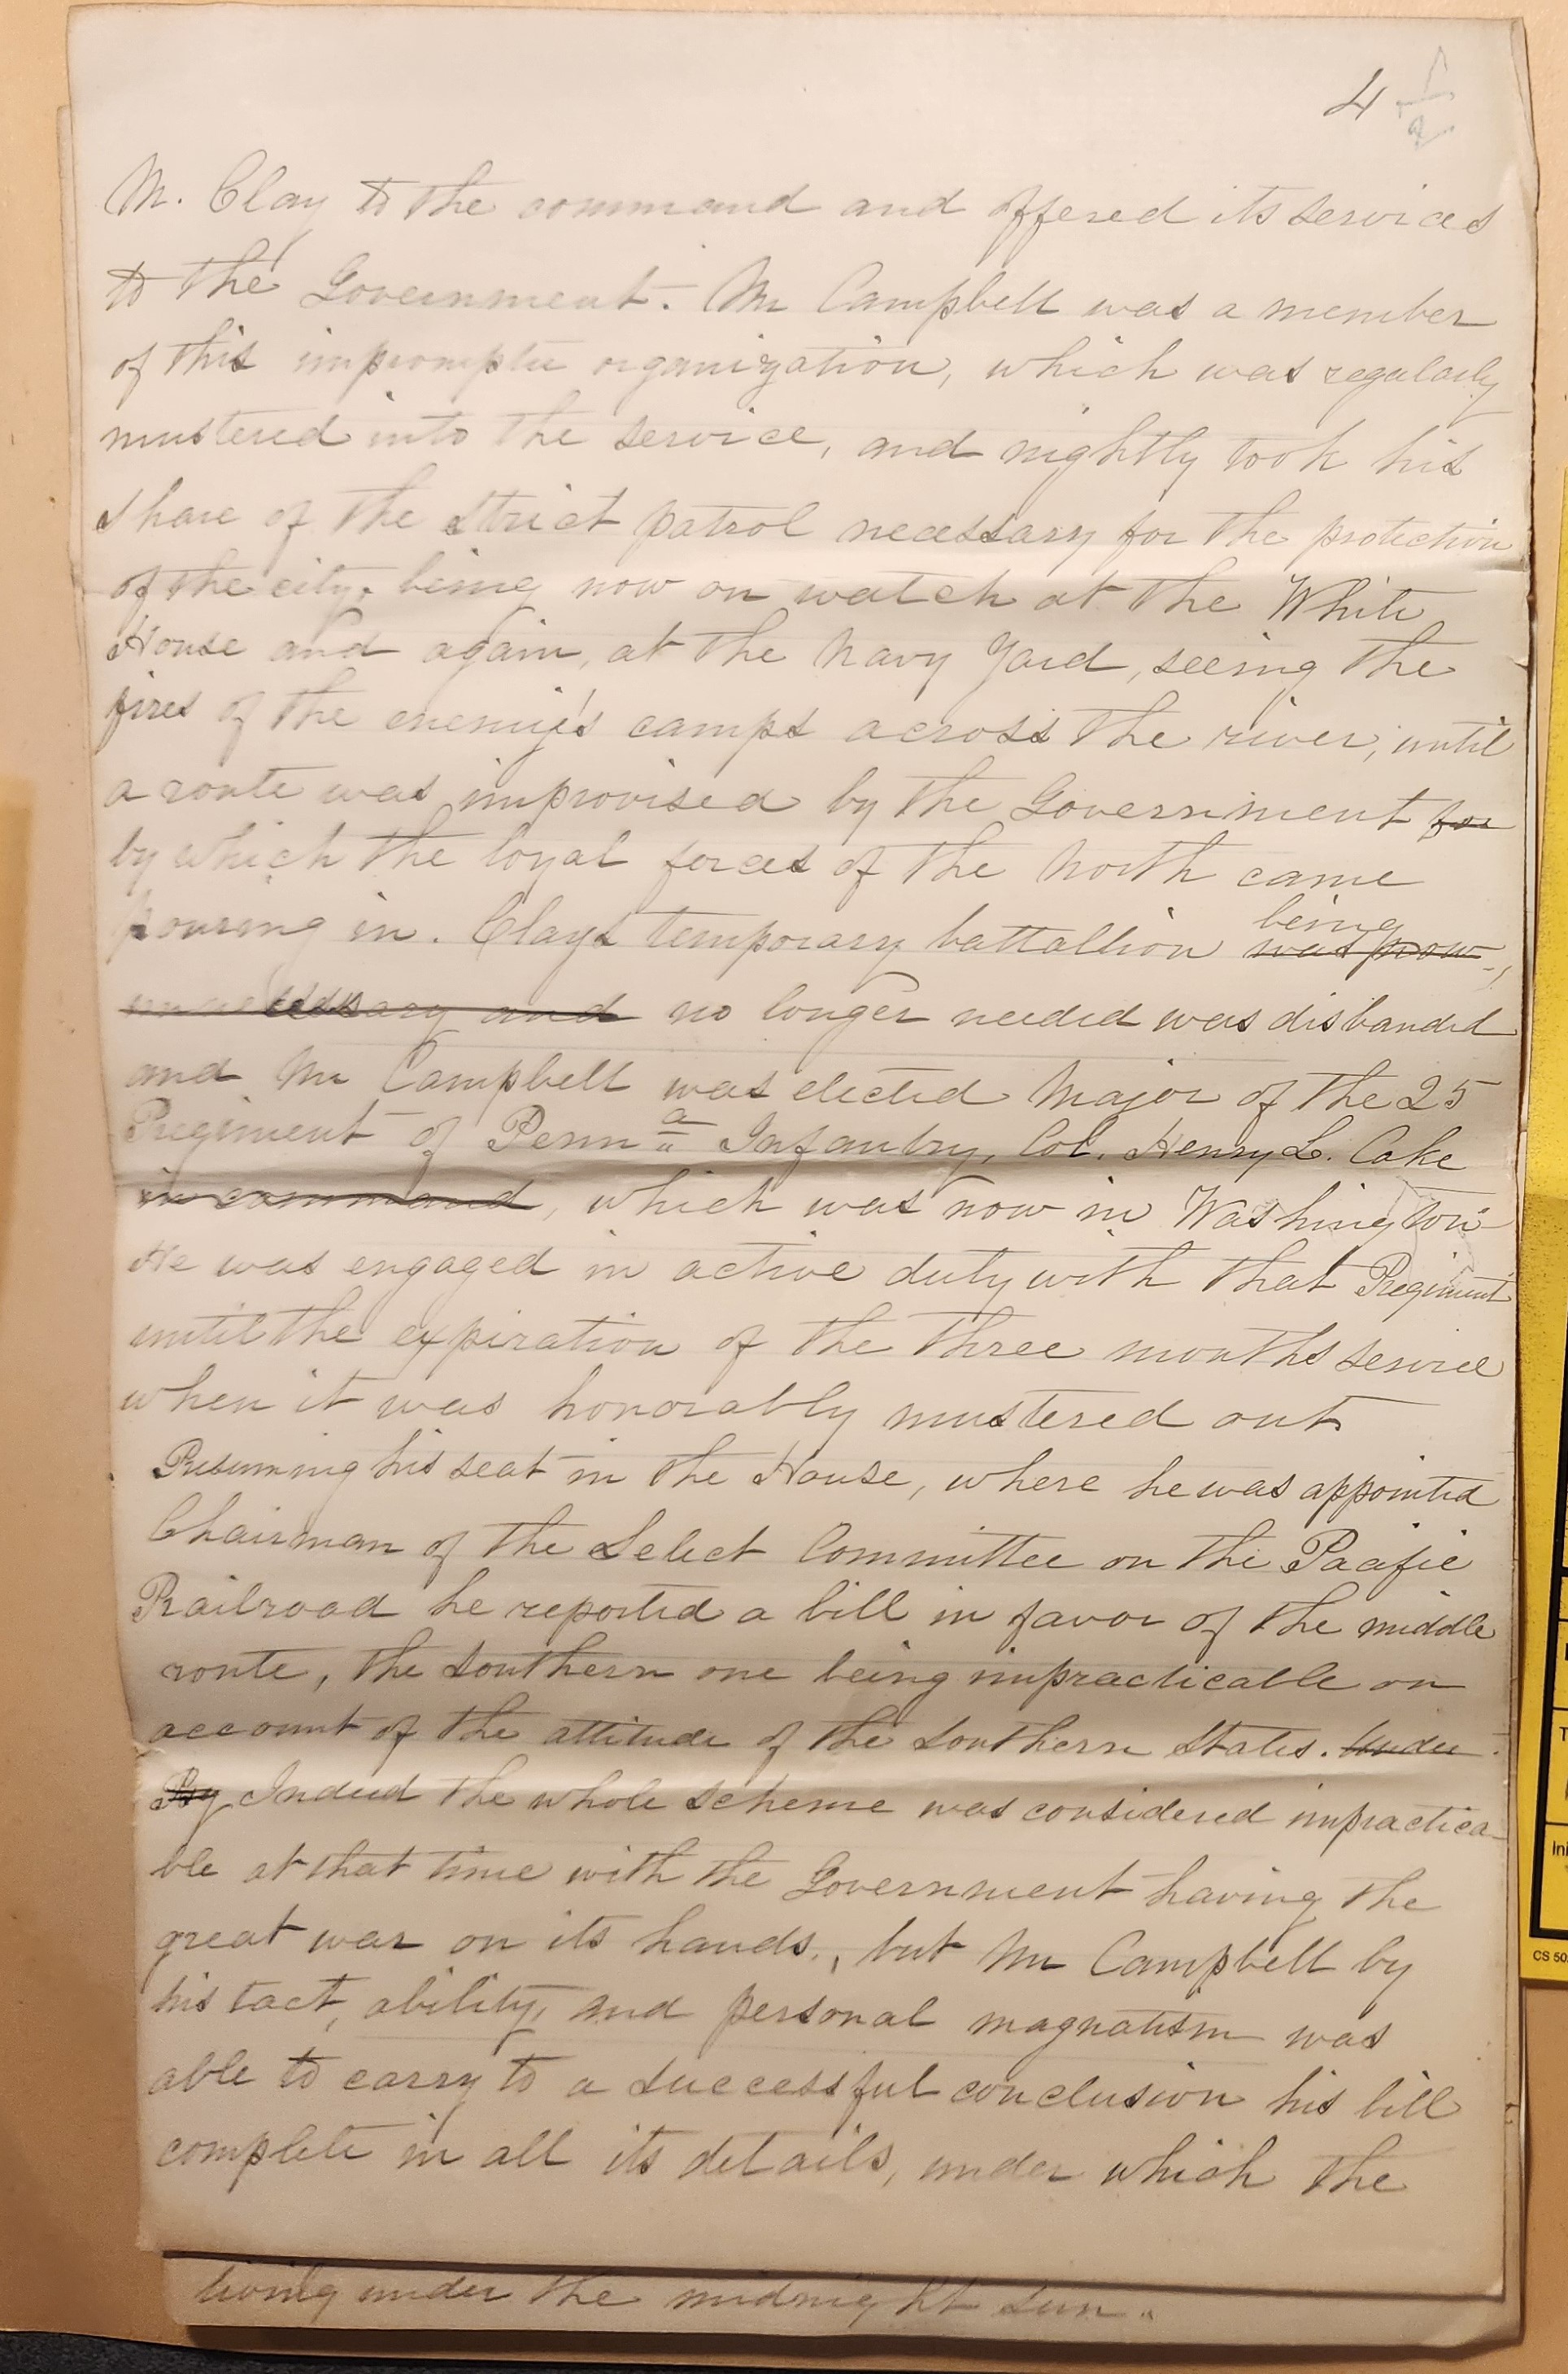 4
M. Clay to the command and offered its services
to the Government. Mr Campbell was a member
of this impromptu organization, which was regularly
mustered into the service, and nightly took his
share of the strict patrol necessary for the protection
of the city, being now on watch at the White
House and again, at the Navy Yard, seeing the
fires of the enemy's camps across the river, until
a route was improvised by the Government for
by which the loyal forces of the North came
pouring in. Clay's temporary battallion was now
being
unnecessary and no longer needed was disbanded
and Mr Campbell was elected Major of the 25
Regiment of Penna Infantry, Col. Henry L. Cake
in command, which was now in Washington
He was engaged in active duty with that Regiment
until the expiration of the three months service
when it was honorably mustered out
Resuming his seat in the House, where he was appointed
Chairman of the Select Committee on the Pacific
Railroad he reported a bill in favor of the middle
route, the Southern one being impracticable on
account of the attitude of the Southern States. Under
By Indeed the whole scheme was considered impractica-
ble at that time with the Government having the
great war on its hands., but Mr Campbell by
his tact, ability, and personal magnatism was
able to carry to a successful conclusion his bill
complete in all its details, under which the
living under the midnight sun."